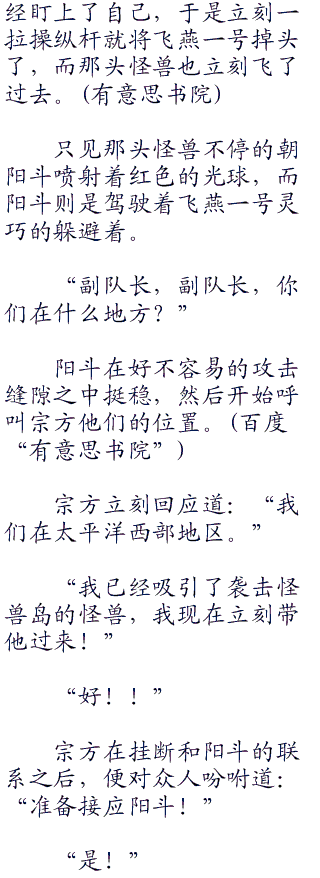 经盯上了自己，于是立刻一
拉操纵杆就将飞燕一号掉头
了，而那头怪兽也立刻飞了
过去。(有意思书院)
只见那头怪兽不停的朝
阳斗喷射着红色的光球，而
阳斗则是驾驶着飞燕一号灵
巧的躲避着。
“副队长，副队长，你
们在什么地方？”
阳斗在好不容易的攻击
缝隙之中挺稳，然后开始呼
叫宗方他们的位置。(百度
“有意思书院”)
宗方立刻回应道：“我
们在太平洋西部地区。”
“我已经吸引了袭击怪
兽岛的怪兽，我现在立刻带
他过来！”
“好！！”
宗方在挂断和阳斗的联
系之后，便对众人吩咐道：
“准备接应阳斗！”
“是！”